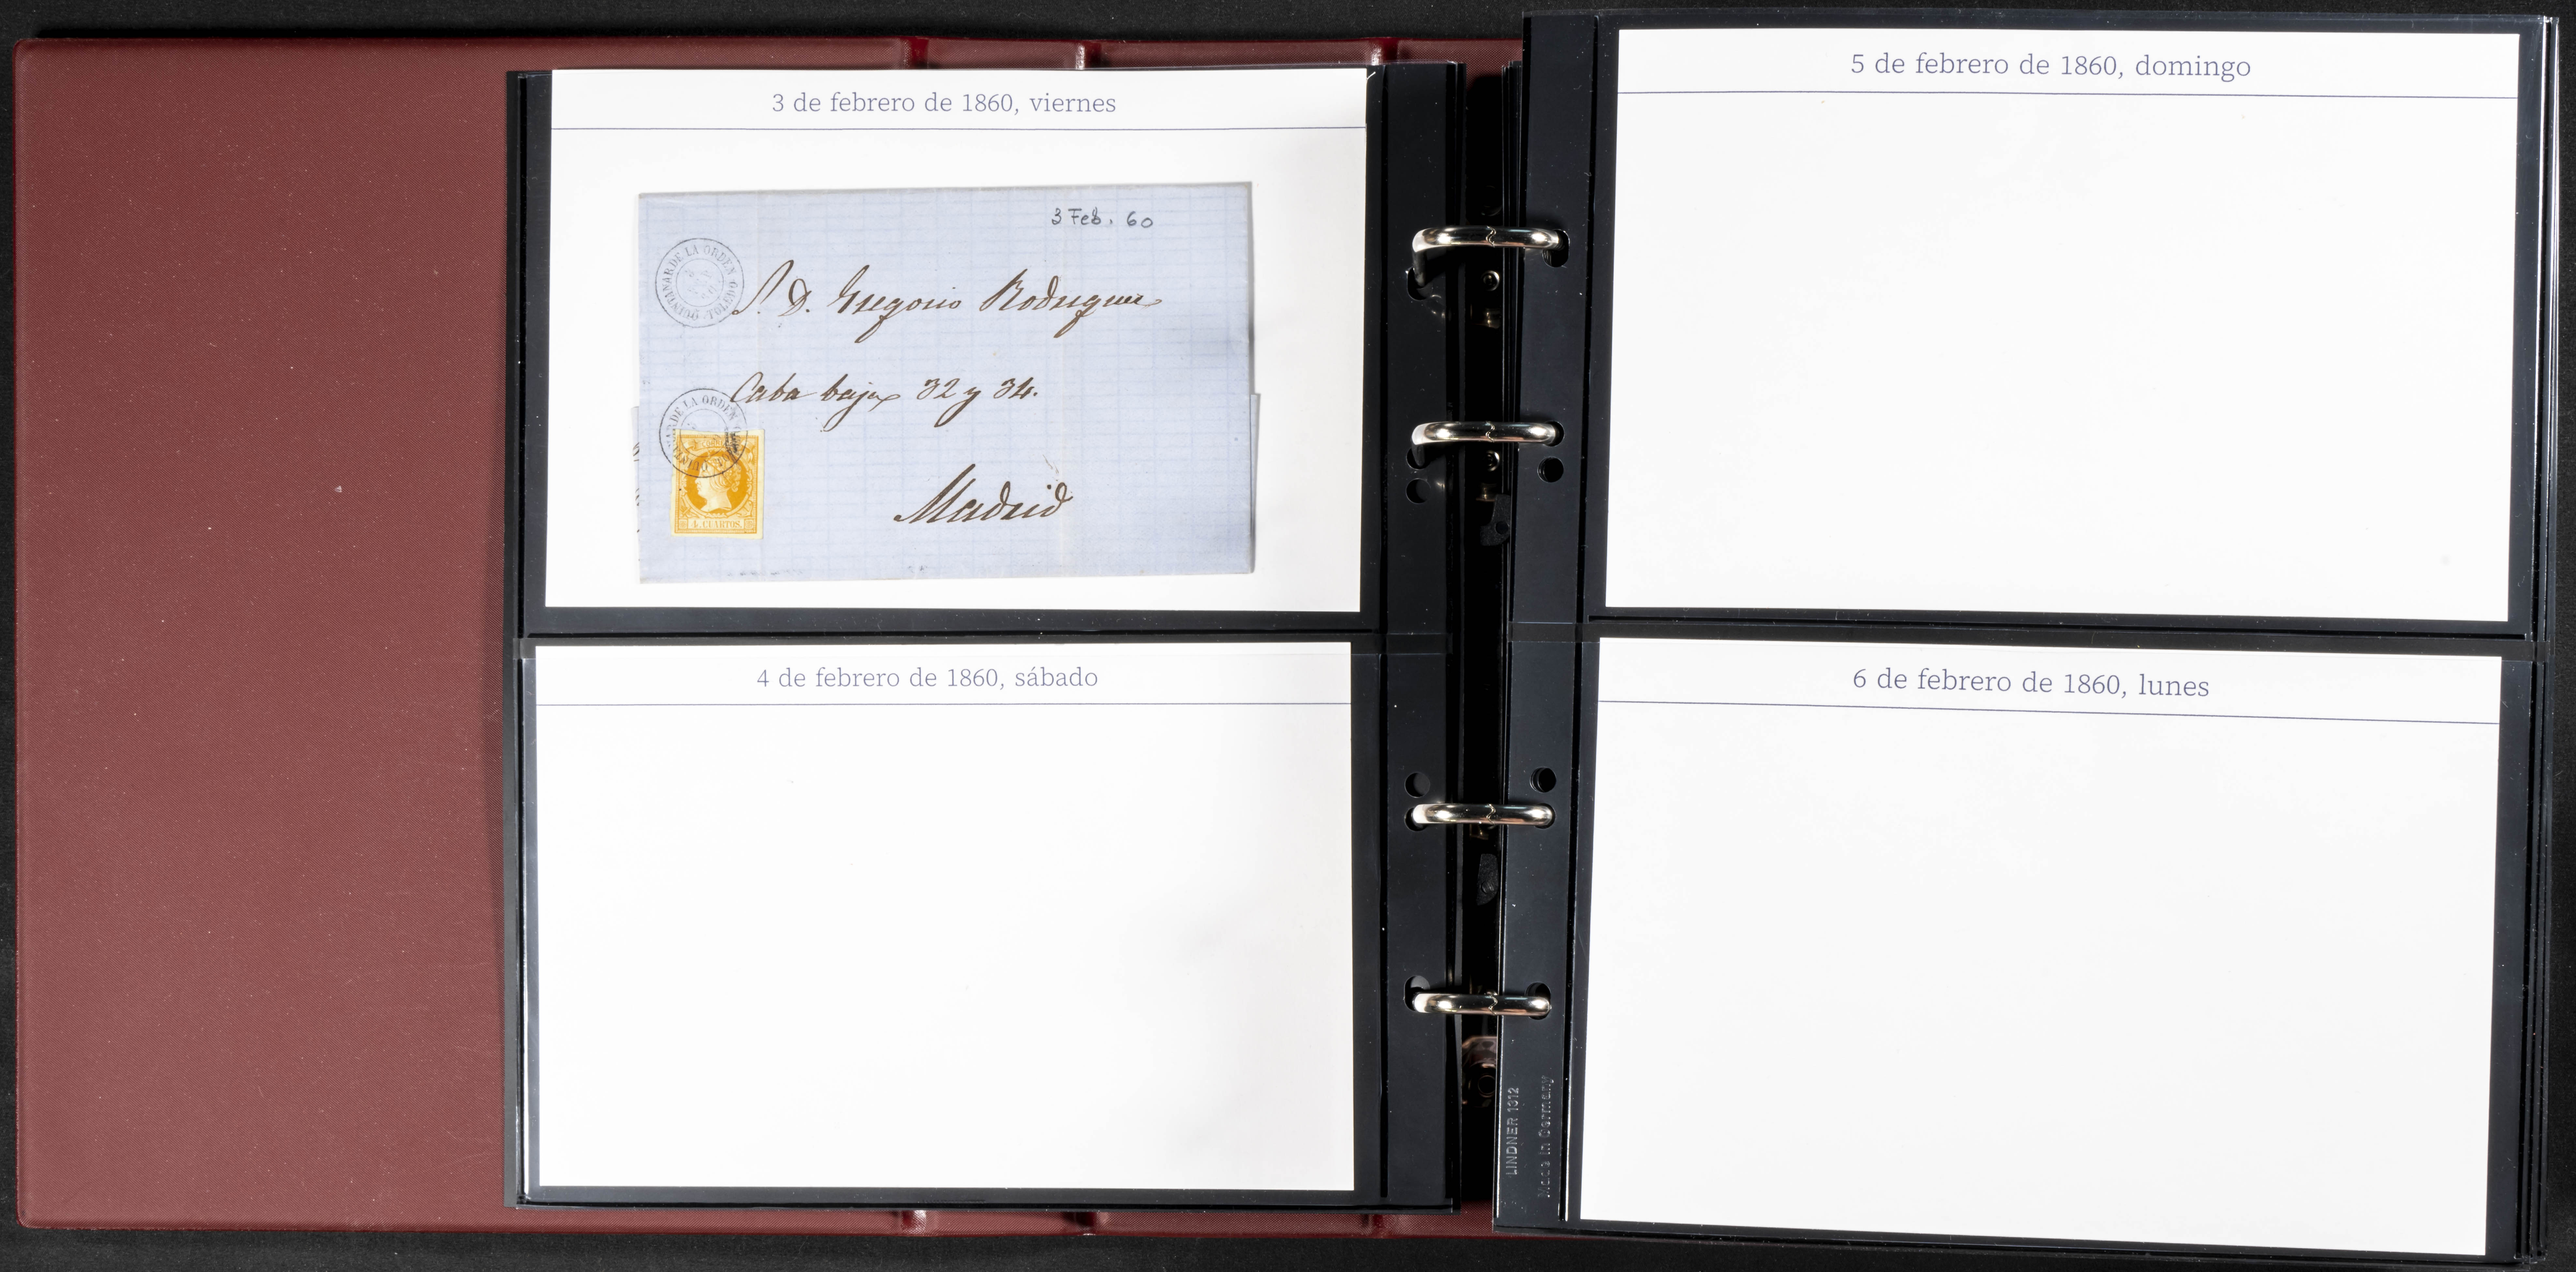 3 de febrero de 1860, viernes
3 Feb. 60
QUINTANAR DE LA ORDEN
TOLEDO
S. D. Gregorio Rodriguez
Caba baja 32 y 34.
DE LA ORDEN
4 CUARTOS.
Madrid
4 de febrero de 1860, sábado
5 de febrero de 1860, domingo
6 de febrero de 1860, lunes
LINDNER 1312
Made in Germany